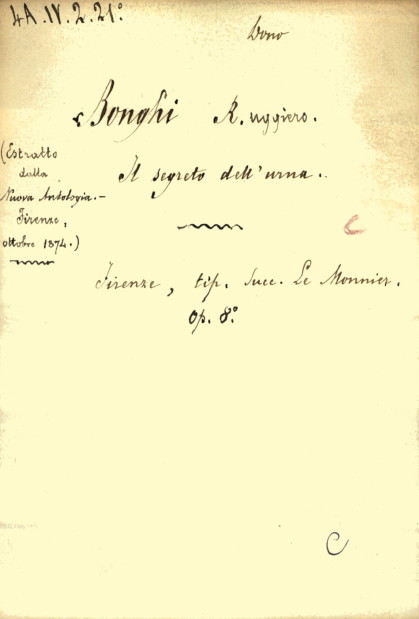 4A.IV.2.21°
Dono
Bonghi R.uggiero.
(Estratto
dalla
Nuova Antologia.-
Firenze,
ottobre 1874.)
Il segreto dell'urna.
Firenze, tip. Succ. Le Monnier.
Op. 8°
C
C